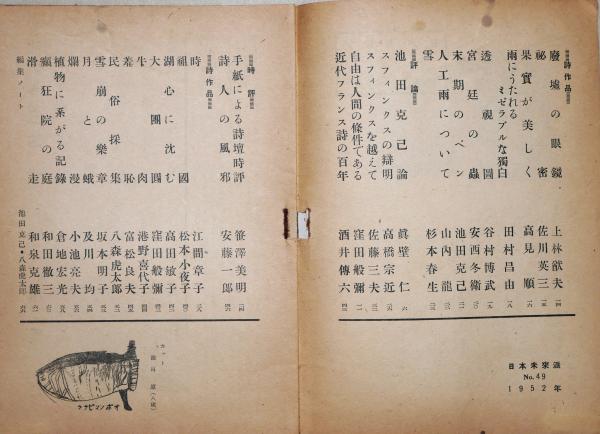 詩作品
廢墟の眼鏡 上林猷夫
祕密 佐川英三
果實が美しく 高見順
雨にうたれる
ミゼラブルな獨白 田村昌由
透視圖 谷村博武
宮廷の蟲 安西冬衛
末期のペン 池田克己
人工雨について 山内龍
雪 杉本春生
評論
池田克己論 眞壁仁 六
スフィンクスの辯明 高橋宗近
スフィンクスを越えて 佐藤三夫
自由は人間の條件である 窪田般彌
近代フランス詩の百年 酒井傳六
日本未來派
No.49
1952年
時評
手紙による詩壇時評 笹澤美明
詩人の風邪 安藤一郎
詩作品
時 江間章子
祖國 松本小夜子
湖心に沈む 高田敏子
大團圓 窪田般彌
牛肉 港野喜代子
羞恥 富松良夫
民俗採集 八森虎太郎
雪崩の樂章 坂本明子
月と蛾 及川均
爛漫 小池亮夫
植物に系がる記錄 倉地宏光
癲狂院の庭 和田徹三
滑走 和泉克雄
編集ノイト 池田克己・八森虎太郎
カット